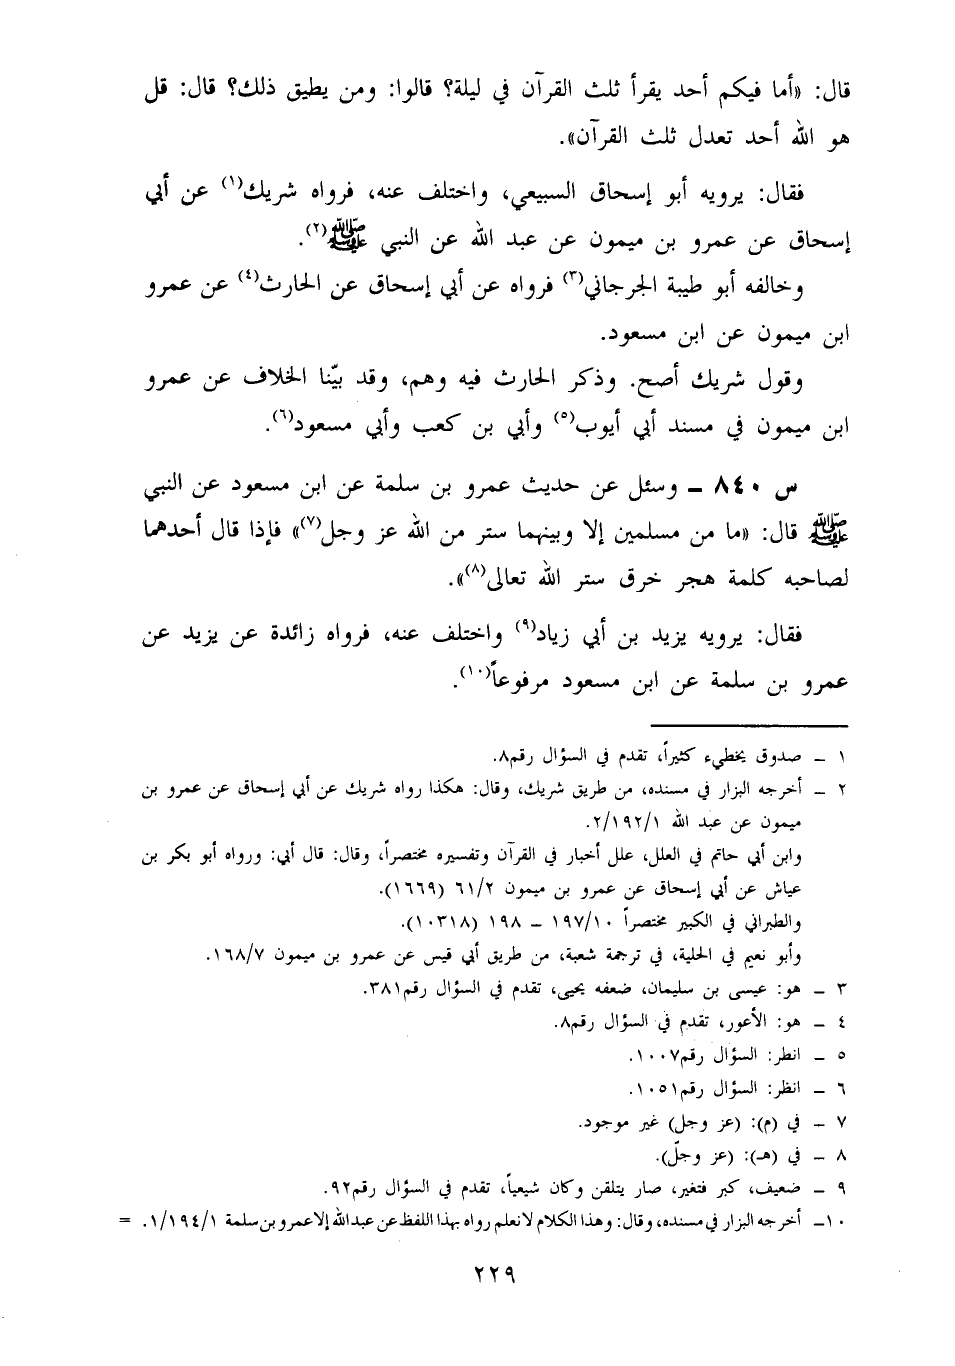 قال: «أما فيكم أحد يقرأ ثلث القرآن في ليلة؟ قالوا: ومن يطيق ذلك؟ قال: قل
هو الله أحد تعدل ثلث القرآن».
فقال: يرويه أبو إسحاق السبيعي، واختلف عنه، فرواه شريك(١) عن أبي
إسحاق عن عمرو بن ميمون عن عبد الله عن النبي ﷺ(٢).
وخالفه أبو طيبة الجرجاني(٣) فرواه عن أبي إسحاق عن الحارث(٤) عن عمرو
ابن ميمون عن ابن مسعود.
وقول شريك أصح. وذكر الحارث فيه وهم، وقد بيّنا الخلاف عن عمرو
ابن ميمون في مسند أبي أيوب(٥) وأبي بن كعب وأبي مسعود(٦).
س ٨٤٠ ــ وسئل عن حديث عمرو بن سلمة عن ابن مسعود عن النبي
ﷺ قال: «ما من مسلمين إلا وبينهما ستر من الله عز وجل(٧)» فإذا قال أحدهما
لصاحبه كلمة هجر خرق ستر الله تعالى(٨)».
فقال: يرويه يزيد بن أبي زياد(٩) واختلف عنه، فرواه زائدة عن يزيد عن
عمرو بن سلمة عن ابن مسعود مرفوعاً(١٠).
١ ــ صدوق يخطيء كثيراً، تقدم في السؤال رقم٨.
٢ ــ أخرجه البزار في مسنده، من طريق شريك، وقال: هكذا رواه شريك عن أبي إسحاق عن عمرو بن
ميمون عن عبد الله ٢/١٩٢/١.
وابن أبي حاتم في العلل، علل أخبار في القرآن وتفسيره مختصراً، وقال: قال أبي: ورواه أبو بكر بن
عياش عن أبي إسحاق عن عمرو بن ميمون ٦١/٢ (١٦٦٩).
والطبراني في الكبير مختصراً ١٩٧/١٠ ــ ١٩٨ (١٠٣١٨).
وأبو نعيم في الحلية، في ترجمة شعبة، من طريق أبي قيس عن عمرو بن ميمون ١٦٨/٧.
٣ ــ هو: عيسى بن سليمان، ضعفه يحيى، تقدم في السؤال رقم٣٨١.
٤ ــ هو: الأعور، تقدم في السؤال رقم٨.
٥ ــ انظر: السؤال رقم١٠٠٧.
٦ ــ انظر: السؤال رقم١٠٥١.
٧ ــ في (م): (عز وجل) غير موجود.
٨ ــ في (هـ): (عز وجلّ).
٩ ــ ضعيف، كبر فتغير، صار يتلقن وكان شيعياً، تقدم في السؤال رقم٩٢.
١٠ــ أخرجه البزار في مسنده، وقال: وهذا الكلام لا نعلم رواه بهذا اللفظ عن عبدالله إلا عمرو بن سلمة ١/١٩٤/١. =
٢٢٩